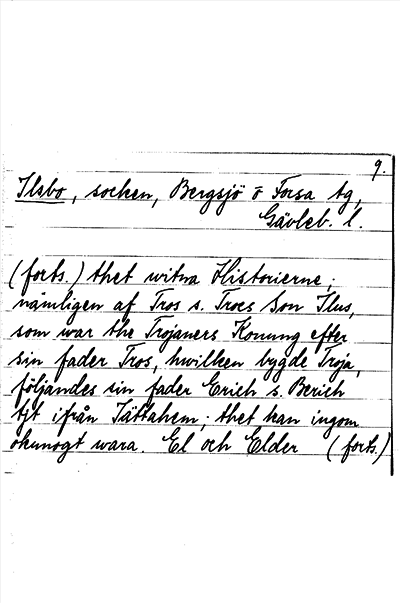 9.
Ilsbo, socken, Bergsjö o Forsa tg,
Gävleb. l.
(forts.) thet witna Historierne;
nämligen af Tros s. Troes Son Ilus,
som war the Trojaners Konung efter
sin fader Tros, hwilken bygde Troja,
följandes sin fader Erich s. Berich
tjt ifrån Jättahem; thet kan ingom
okunogt wara. El och Elder (forts.)